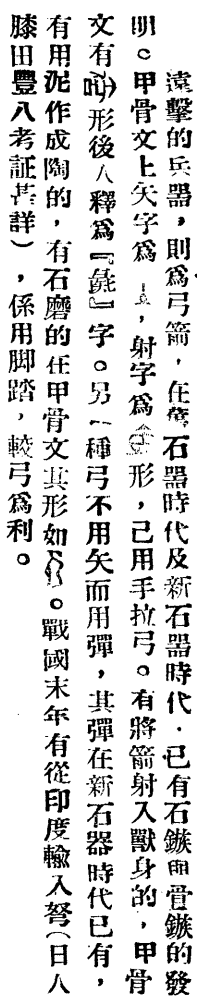 遠擊的兵器，則爲弓箭，在舊石器時代及新石器時代．已有石鏃與骨鏃的發
明。甲骨文上矢字爲，射字爲形，已用手拉弓。有將箭射入獸身的，甲骨
文有形後人釋爲『彘』字。另一種弓不用矢而用彈，其彈在新石器時代已有，
有用泥作成陶的，有石磨的在甲骨文其形如。戰國末年有從印度輸入弩（日人
膝田豐八考証甚詳），係用脚踏，較弓爲利。